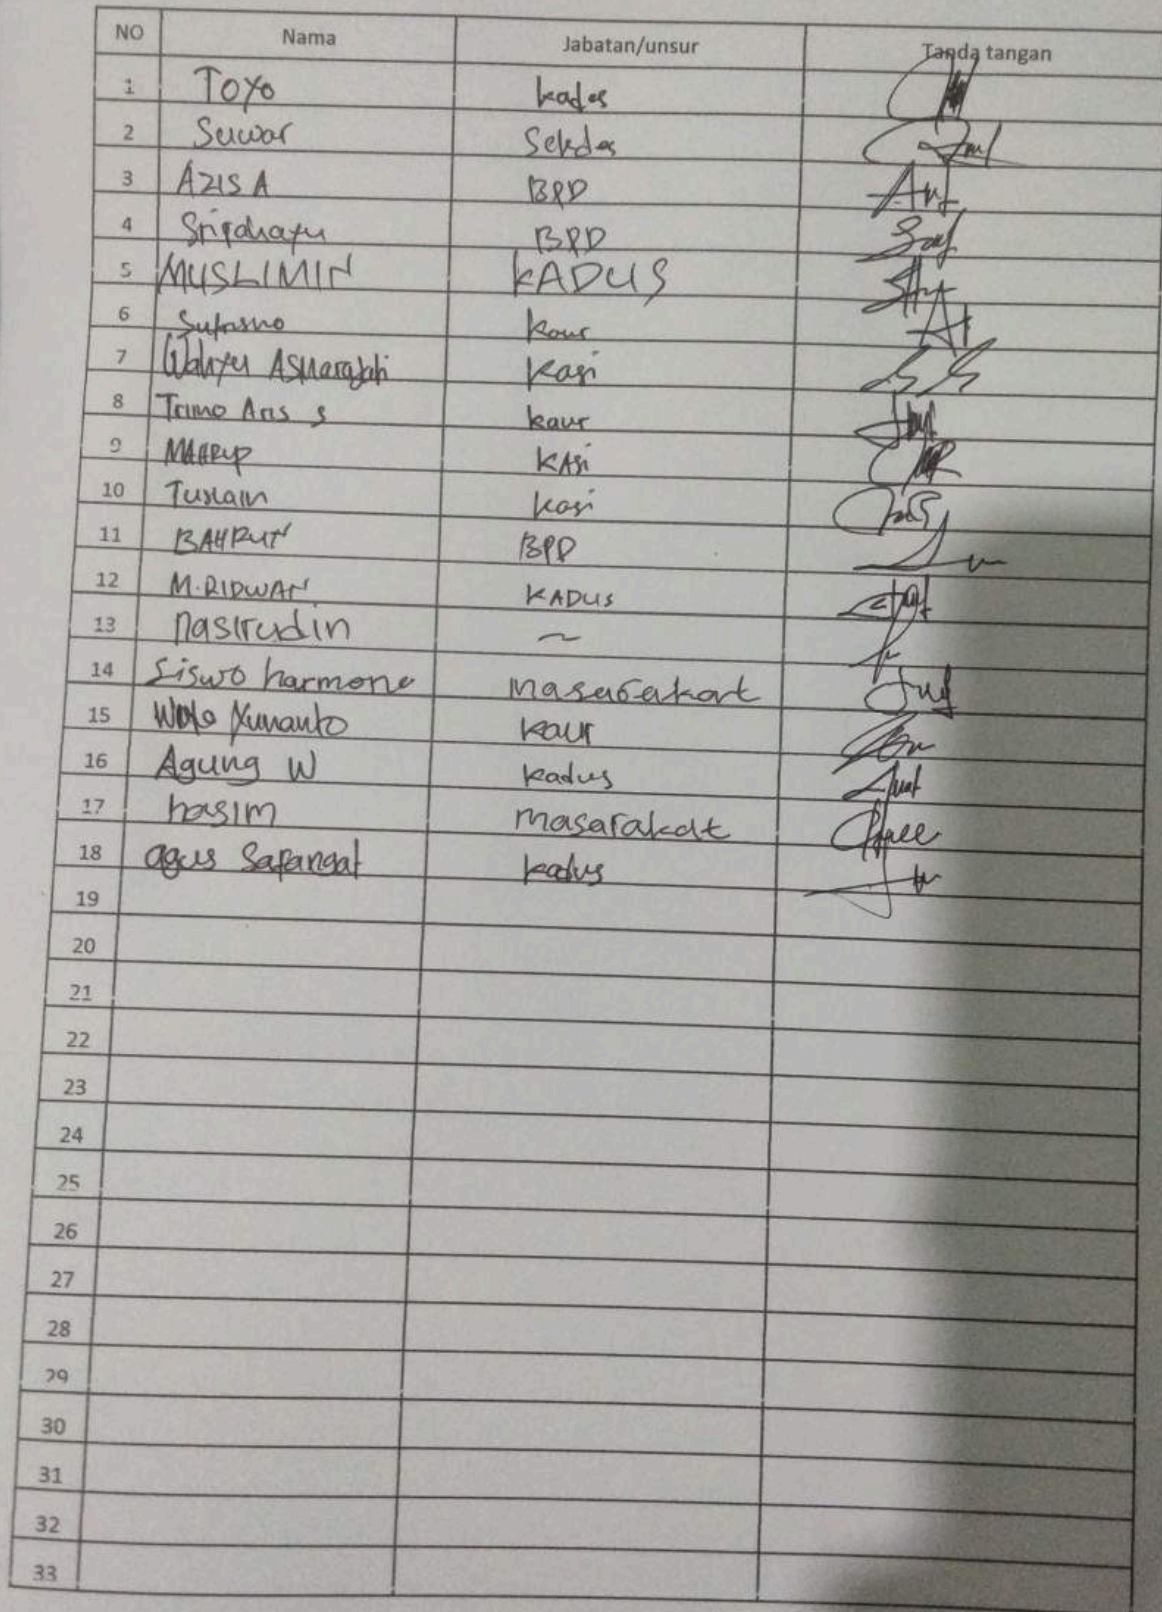 NO Nama Jabatan/unsur Tanda tangan
1 Toyo kades
2 Suwar Sekdes
3 AZIS A BPD
4 Srirahayu BPD
5 MUSLIMIN KADUS
6 Sutrisno kaur
7 Wahyu kasi
8 Trimo Aris S kaur
9 MAHRUP KASi
10 Tuslain kasi
11 BAHRUN BPD
12 M.RIDWAN KADUS
13 nasirudin ~
14 Siswo harmono masarakat
15 Yunanto kaur
16 Agung W kadus
17 hasim masarakat
18 agus Safangat kadus
19
20
21
22
23
24
25
26
27
28
29
30
31
32
33